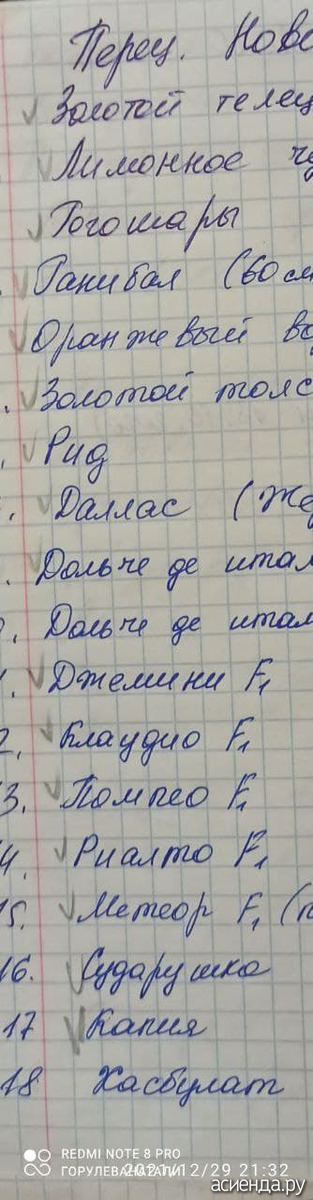 Перец. Ново
Золотой телец
Лимонное чу
Гогошары
Ганибал (60 см
Оранжевый во
. Золотой толс
. Рид
. Даллас (Же
. Дольче де итал
. Дольче де итал
1. Джемини F1
2. Клаудио F1
3. Помпео F1
4. Риалто F1
15. Метеор F1 (п
16. Сударушка
17 Капия
18 Хасбулат
REDMI NOTE 8 PRO
ГОРУЛЕВАНАТАЛИ 2021/12/29 21:32
асиенда.ру